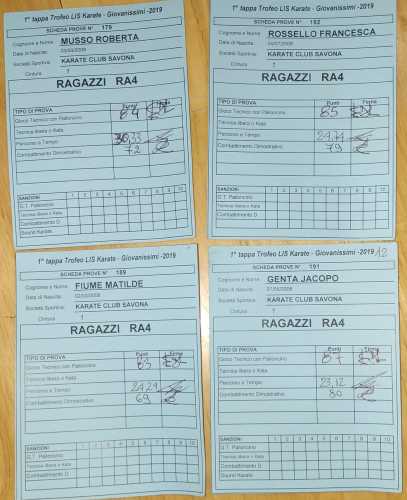 1° tappa Trofeo LIS Karate - Giovanissimi -2019
SCHEDA PROVE N° 179
Cognome e Nome MUSSO ROBERTA
Data di Nascita:
Società Sportiva: KARATE CLUB SAVONA
Cintura 1
RAGAZZI RA4
TIPO DI PROVA Punti Firma
Gioco Tecnico con Palloncino 84
Tecnica libera o Kata
Percorso a Tempo 30,33
Combattimento Dimostrativo 72
SANZIONI 1 2 3 4 5 6 7 8 9 10
G.T. Palloncino
Tecnica libera o Kata
Combattimento D
Sound Karate
1° tappa Trofeo LIS Karate - Giovanissimi -2019
SCHEDA PROVE N° 182
Cognome e Nome ROSSELLO FRANCESCA
Data di Nascita:
Società Sportiva: KARATE CLUB SAVONA
Cintura 1
RAGAZZI RA4
TIPO DI PROVA Punti Firma
Gioco Tecnico con Palloncino 85
Tecnica libera o Kata
Percorso a Tempo
Combattimento Dimostrativo 79
SANZIONI 1 2 3 4 5 6 7 8 9 10
G.T. Palloncino
Tecnica libera o Kata
Combattimento D
1° tappa Trofeo LIS Karate - Giovanissimi -2019
SCHEDA PROVE N° 189
Cognome e Nome FIUME MATILDE
Data di Nascita:
Società Sportiva: KARATE CLUB SAVONA
Cintura 1
RAGAZZI RA4
TIPO DI PROVA Punti Firma
Gioco Tecnico con Palloncino 83
Tecnica libera o Kata
Percorso a Tempo 24,29
Combattimento Dimostrativo 69
SANZIONI 1 2 3 4 5 6 7 8 9 10
G.T. Palloncino
Tecnica libera o Kata
Combattimento D
Sound Karate
1° tappa Trofeo LIS Karate - Giovanissimi -2019 12
SCHEDA PROVE N° 191
Cognome e Nome GENTA JACOPO
Data di Nascita:
Società Sportiva: KARATE CLUB SAVONA
Cintura 1
RAGAZZI RA4
TIPO DI PROVA Punti Firma
Gioco Tecnico con Palloncino 87
Tecnica libera o Kata
Percorso a Tempo 23,12
Combattimento Dimostrativo 80
SANZIONI 1 2 3 4 5 6 7 8 9 10
G.T. Palloncino
Tecnica libera o Kata
Combattimento D
Sound Karate